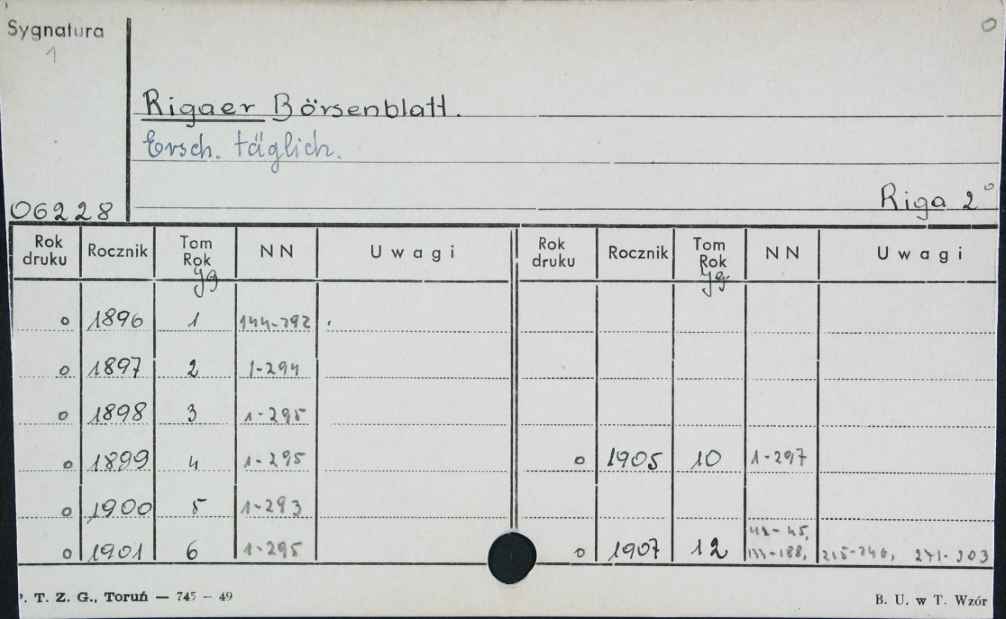 Sygnatura
1
0
Rigaer Börsenblatt.
Ersch. täglich.
Riga 2°
06228
Rok druku Rocznik Tom Rok Jg NN Uwagi Rok druku Rocznik Tom Rok Jg NN Uwagi
o 1896 1 144-292
o 1897 2 1-294
o 1898 3 1-295
o 1899 4 1-295 o 1905 10 1-297
o 1900 5 1-293
o 1901 6 1-295 o 1907 12 215-246, 271-303
P. T. Z. G., Toruń — 745 — 49
B. U. w T. Wzór